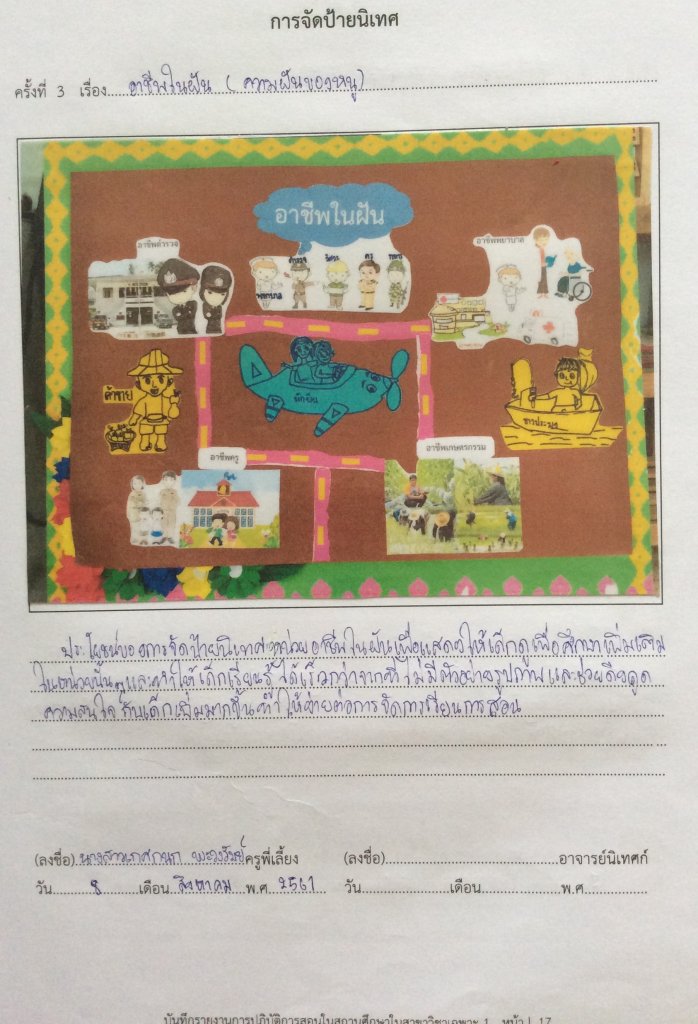 การจัดป้ายนิเทศ
ครั้งที่ 3 เรื่อง อาชีพในฝัน ( ความฝันของหนู)
อาชีพในฝัน
อาชีพตำรวจ
อาชีพพยาบาล
พยาบาล ตำรวจ ครู ทหาร
ค้าขาย
นักบิน
ชาวประมง
อาชีพครู
อาชีพเกษตรกรรม
ประโยชน์ของการจัดป้ายนิเทศหน่วยอาชีพในฝันเพื่อแสดงให้เด็กดูเพื่อศึกษาเพิ่มเติม
ในหน่วยนั้นๆและทำให้เด็กเรียนรู้ได้เร็วกว่าจากที่ไม่มีตัวอย่างรูปภาพและช่วยดึงดูด
ความสนใจกับเด็กเพิ่มมากขึ้นทำให้ง่ายต่อการจัดการเรียนการสอน
(ลงชื่อ) นางสาวเกศกนก ครูพี่เลี้ยง (ลงชื่อ) อาจารย์นิเทศก์
วัน 8 เดือน สิงหาคม พ.ศ. 2561 วัน เดือน พ.ศ.
บันทึกรายงานการปฏิบัติการสอนในสถานศึกษาในสาขาวิชาเฉพาะ 1 หน้า | 17